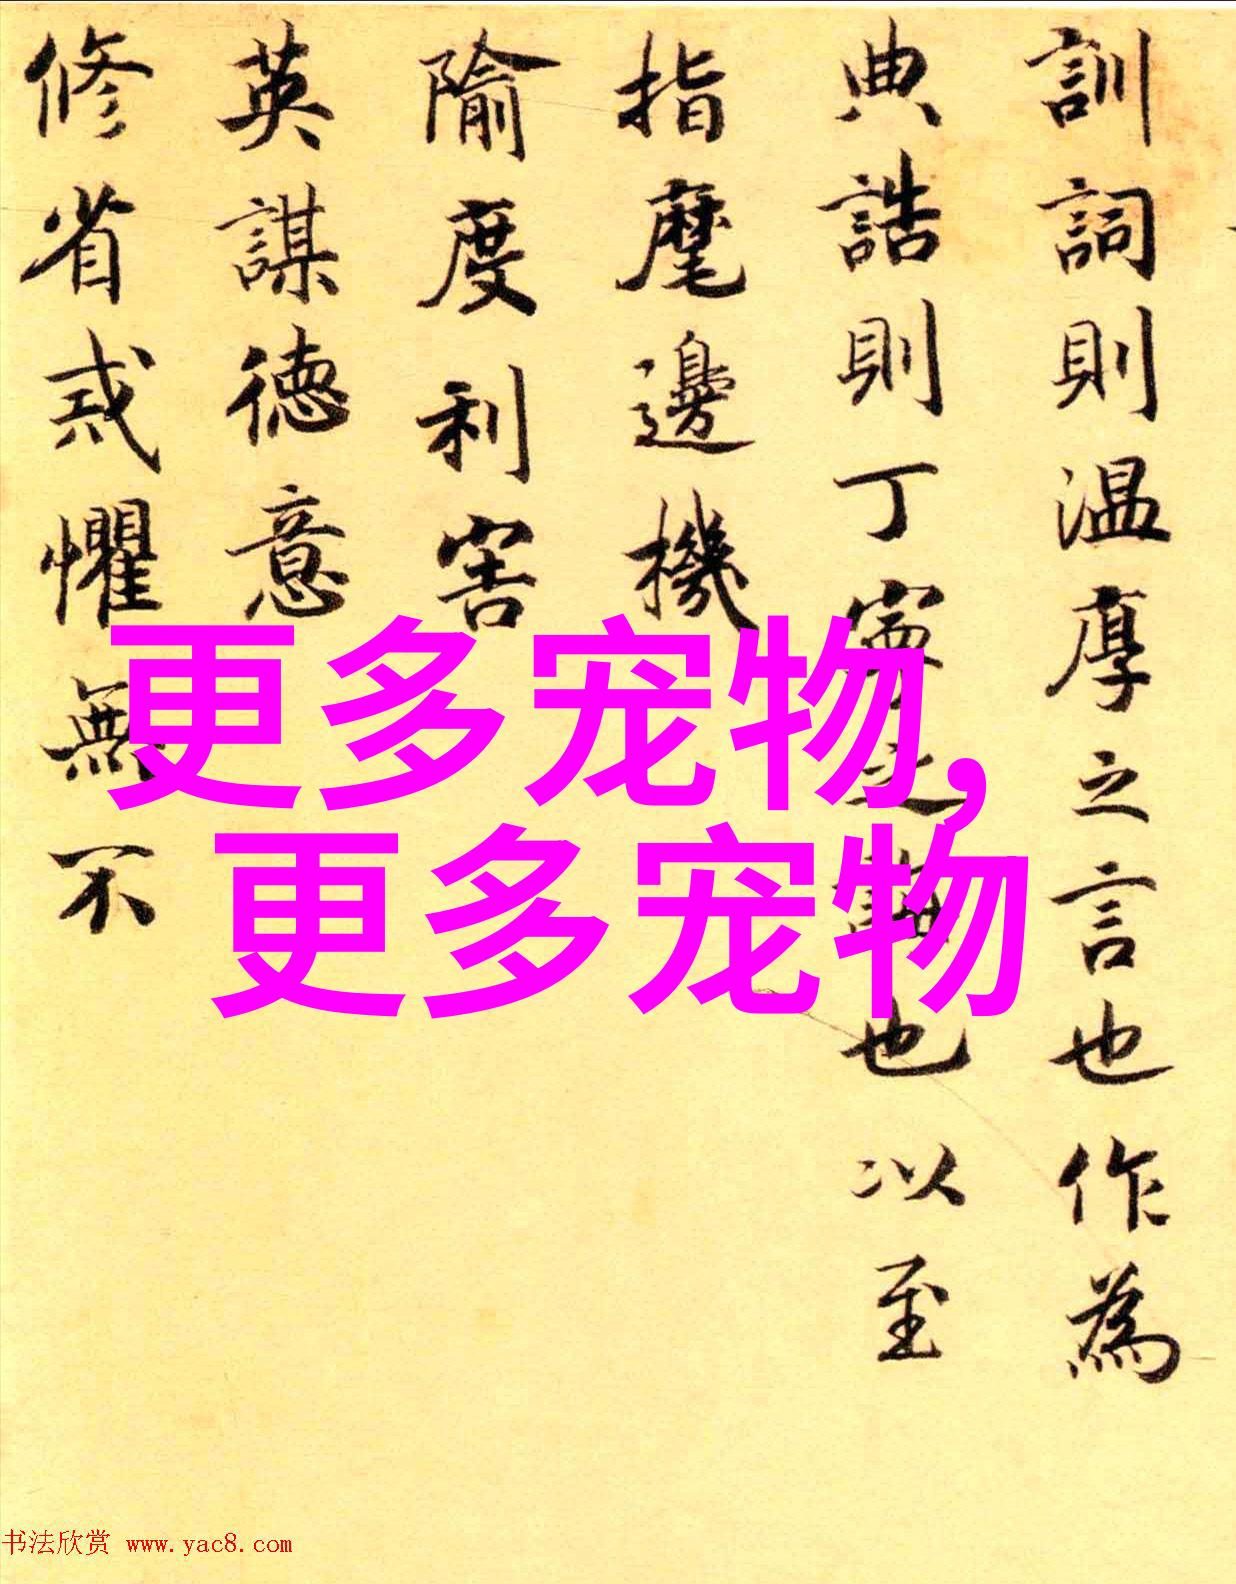 訓詞則温厚之言也作為
典誥則丁寧之誥也以至
指麾邊機
隃度利害
英謀德意
修省戒懼無不
更多宠物,
更多宠物
书法欣赏 www.yac8.com